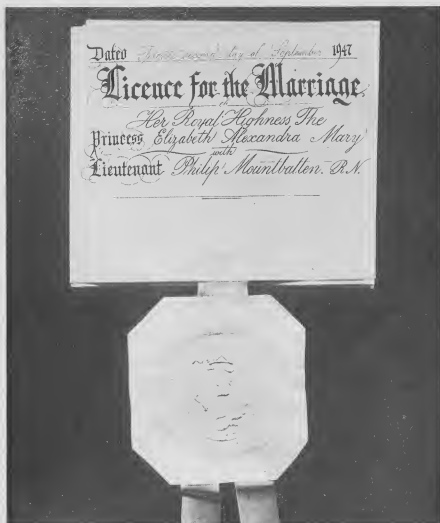 Dated day of September 1947
Licence for the Marriage
Her Royal Highness The
Princess Elizabeth Alexandra Mary
with
Lieutenant Philip Mountbatten. R.N.